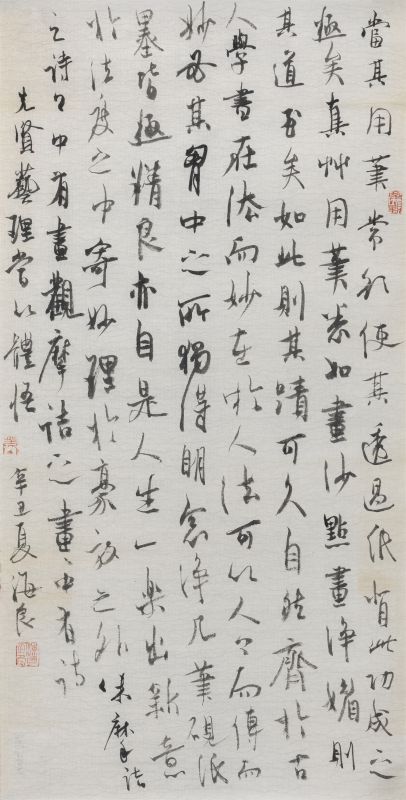 當其用筆常欲使其透過紙背此功成之
極矣真艸用筆悉如畫沙點畫淨媚則
其道至矣如此則其蹟可久自然齊於古
人學書在法而妙在於人法可以人〻而傳而
妙必其胷中之所獨得明窓淨几筆硯紙
墨皆極精良亦自是人生一樂出新意
於法度之中寄妙理於豪放之外味摩詰
之詩〻中有畫觀摩詰之畫〻中有詩
先賢藝理當以體悟 辛丑夏海良